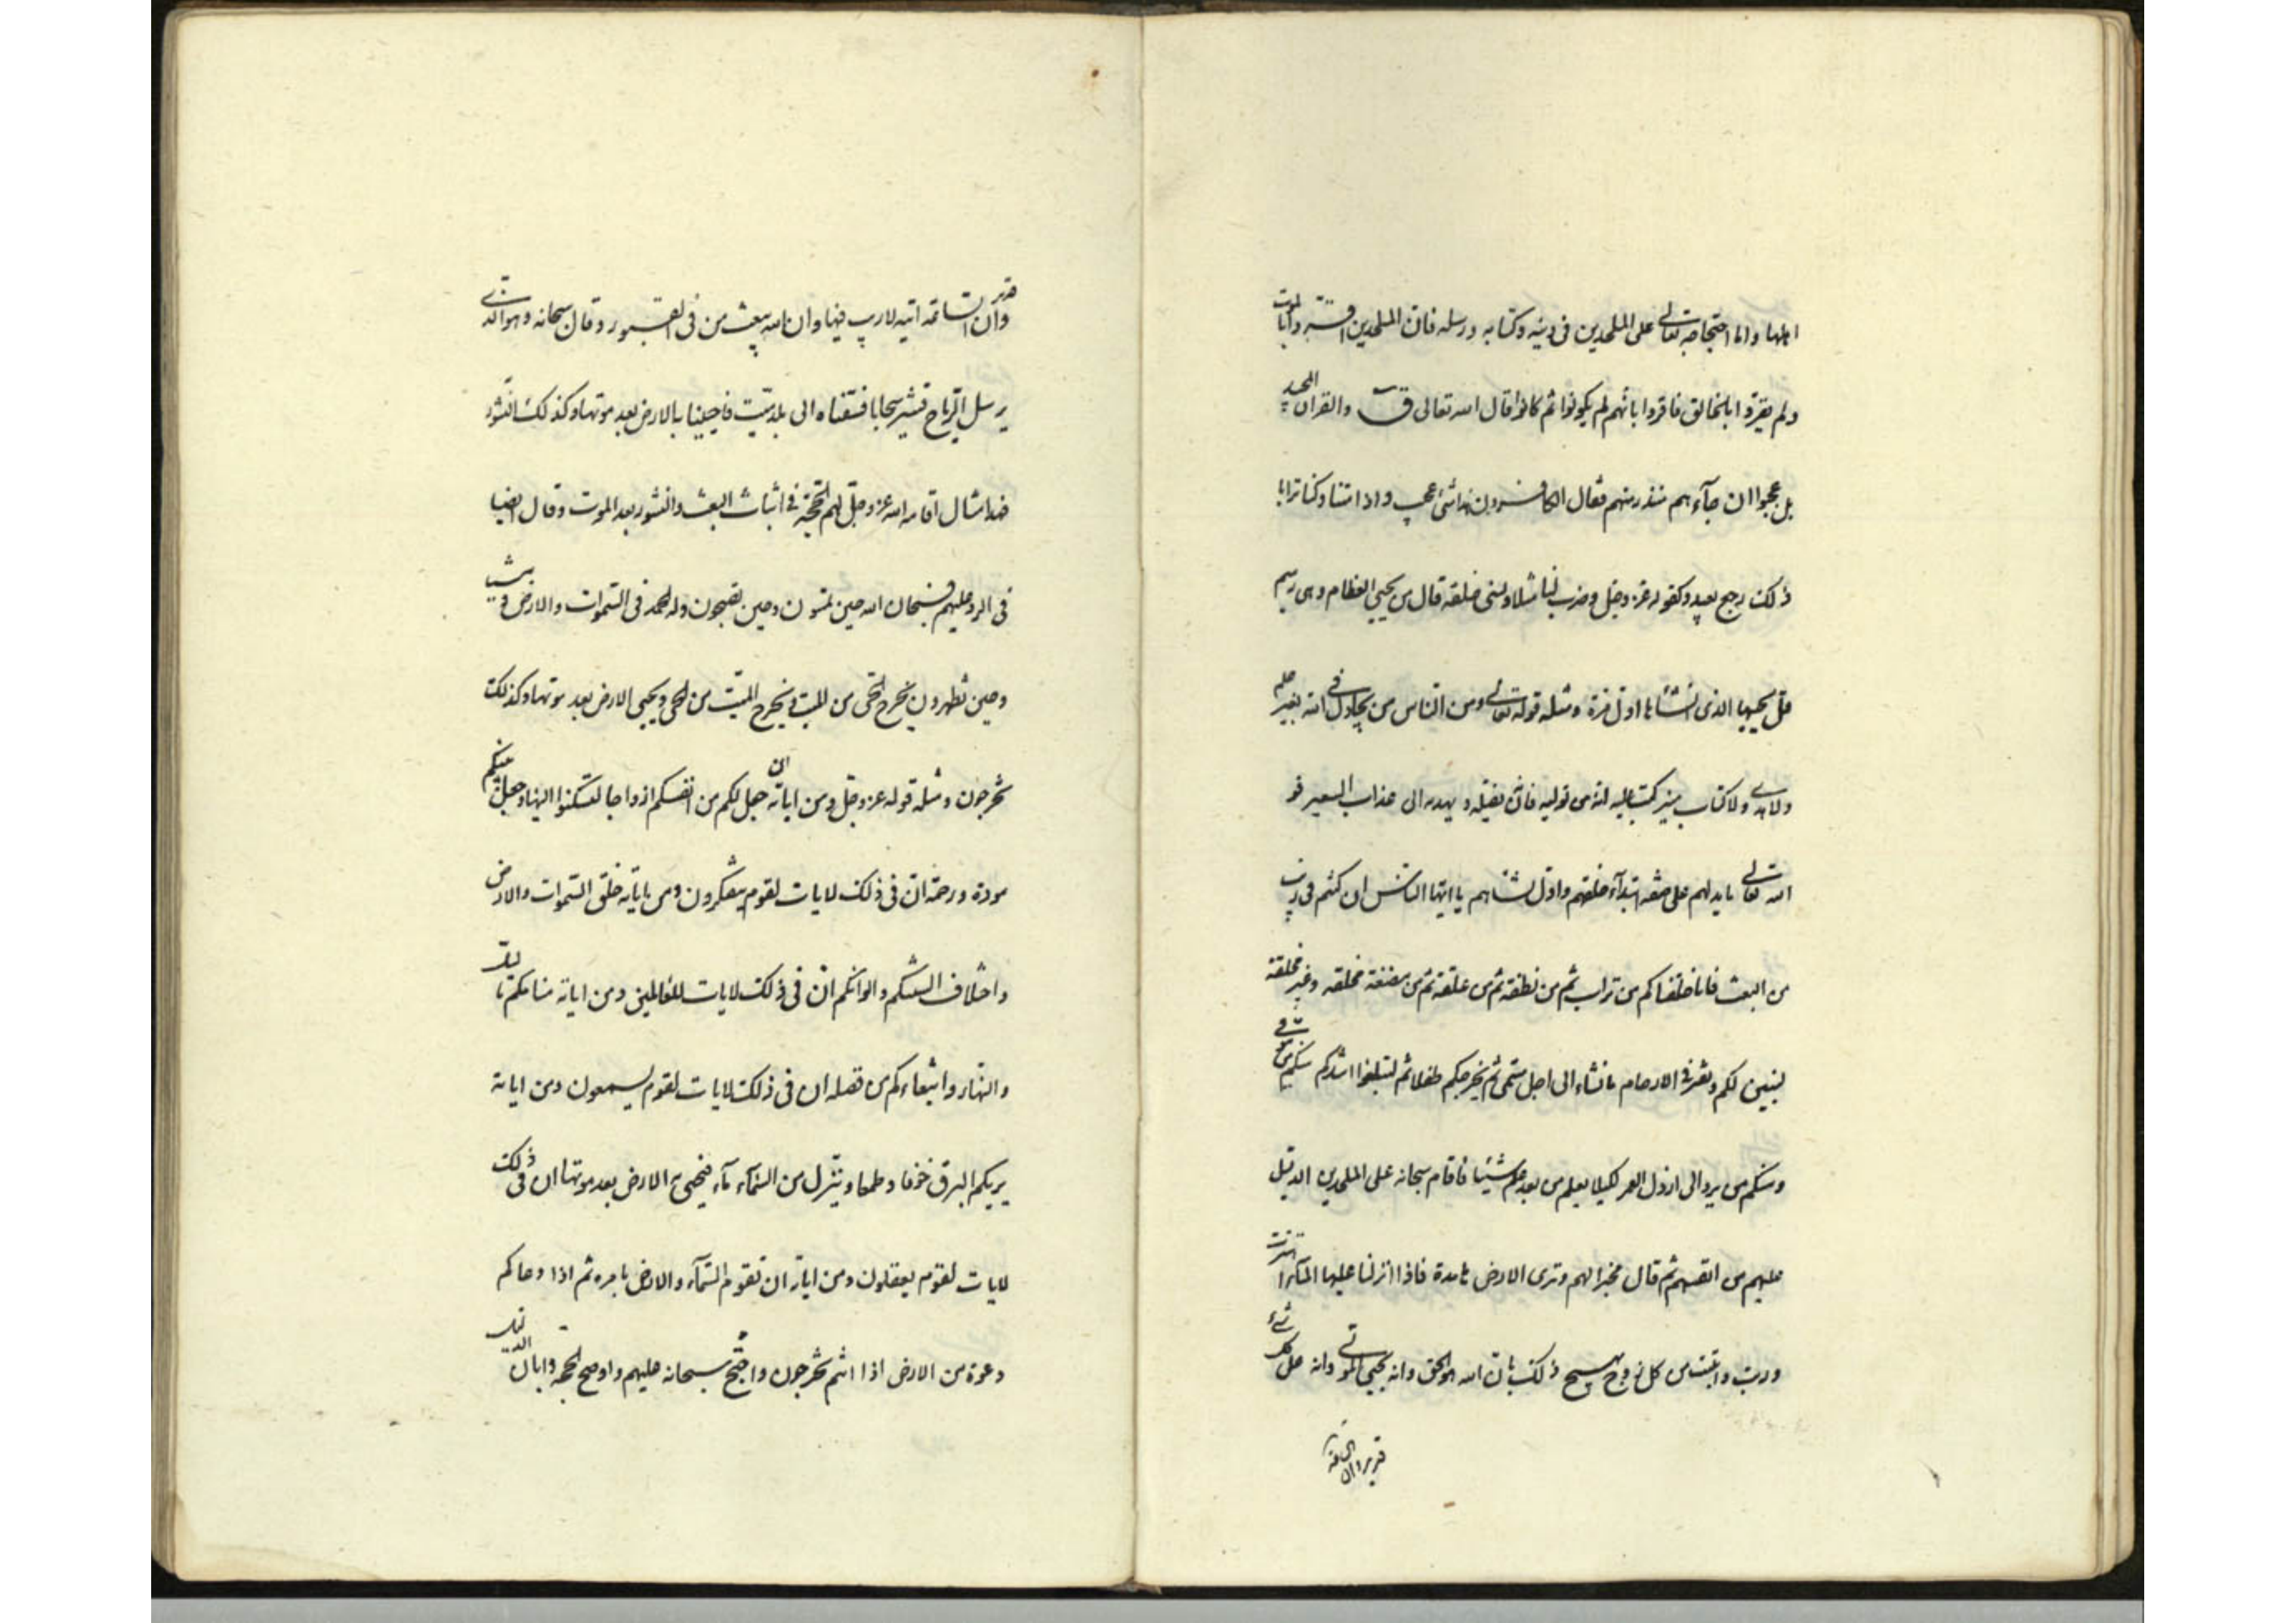 اهلها واما احتجاجه تعالى على الملحدين فى دينه وكتابه ورسله فان الملحدين اقروا بالموت
ولم يقروا بالخالق فاقروا بانهم لم يكونوا ثم كانوا قال الله تعالى ق والقران المجيد
بل عجبوا ان جآءهم منذر منهم فقال الكافرون هذا شئ عجيب واذا متنا وكنا ترابا
ذلك رجع بعيد وكقوله عز وجل وضرب لنا مثلا ونسى خلقه قال من يحيى العظام وهى رميم
قل يحييها الذى انشأها اول مرة ومثله قوله تعالى ومن الناس من يجادل فى الله بغير علم
ولا هدى ولا كتاب منير كتب عليه انه من توليه فانه يضله ويهديه الى عذاب السعير فرد
الله تعالى ما يدلهم على صفة ابتدآء خلقهم واول نشأهم يا ايها الناس ان كنتم فى ريب
من البعث فانا خلقناكم من تراب ثم من نطفة ثم من علقة ثم من مضغة مخلقة وغير مخلقة
لنبين لكم ونقر فى الارحام ما نشاء الى اجل مسمى ثم نخرجكم طفلا ثم لتبلغوا اشدكم ومنكم من يتوفى
ومنكم من يرد الى ارذل العمر لكيلا يعلم من بعد علم شيئا فاقام سبحانه على الملحدين الدليل
عليهم من انفسهم ثم قال مخبرا لهم وترى الارض هامدة فاذا انزلنا عليها المآء اهتزت
وربت وانبتت من كل زوج بهيج ذلك بان الله هو الحق وانه يحيى الموتى وانه على كل شىء
قدير وان الساعة
قدير وان الساعة اتيه لا ريب فيها وان الله يبعث من فى القبور وقال سبحانه وهو الذى
يرسل الرياح فتثير سحابا فسقناه الى بلد ميت فاحيينا به الارض بعد موتها وكذلك النشور
فهذا مثال اقامه الله عز وجل لهم الحجة فى اثبات البعث والنشور بعد الموت وقال ايضا
فى الرد عليهم فسبحان الله حين تمسون وحين تصبحون وله الحمد فى السموات والارض وعشيا
وحين تظهرون يخرج الحى من الميت ويخرج الميت من الحى ويحيى الارض بعد موتها وكذلك
تخرجون ومثله قوله عز وجل ومن اياته ان جعل لكم من انفسكم ازواجا لتسكنوا اليها وجعل بينكم
مودة ورحمة ان فى ذلك لايات لقوم يتفكرون ومن اياته خلق السموات والارض
واختلاف السنتكم والوانكم ان فى ذلك لايات للعالمين ومن اياته منامكم بالليل
والنهار وابتغاءكم من فضله ان فى ذلك لايات لقوم يسمعون ومن اياته
يريكم البرق خوفا وطمعا وينزل من السمآء مآء فيحيى به الارض بعد موتها ان فى ذلك
لايات لقوم يعقلون ومن اياته ان تقوم السمآء والارض بامره ثم اذا دعاكم
دعوة من الارض اذا انتم تخرجون واحتج سبحانه عليهم واوضح الحجة وابان الدليل